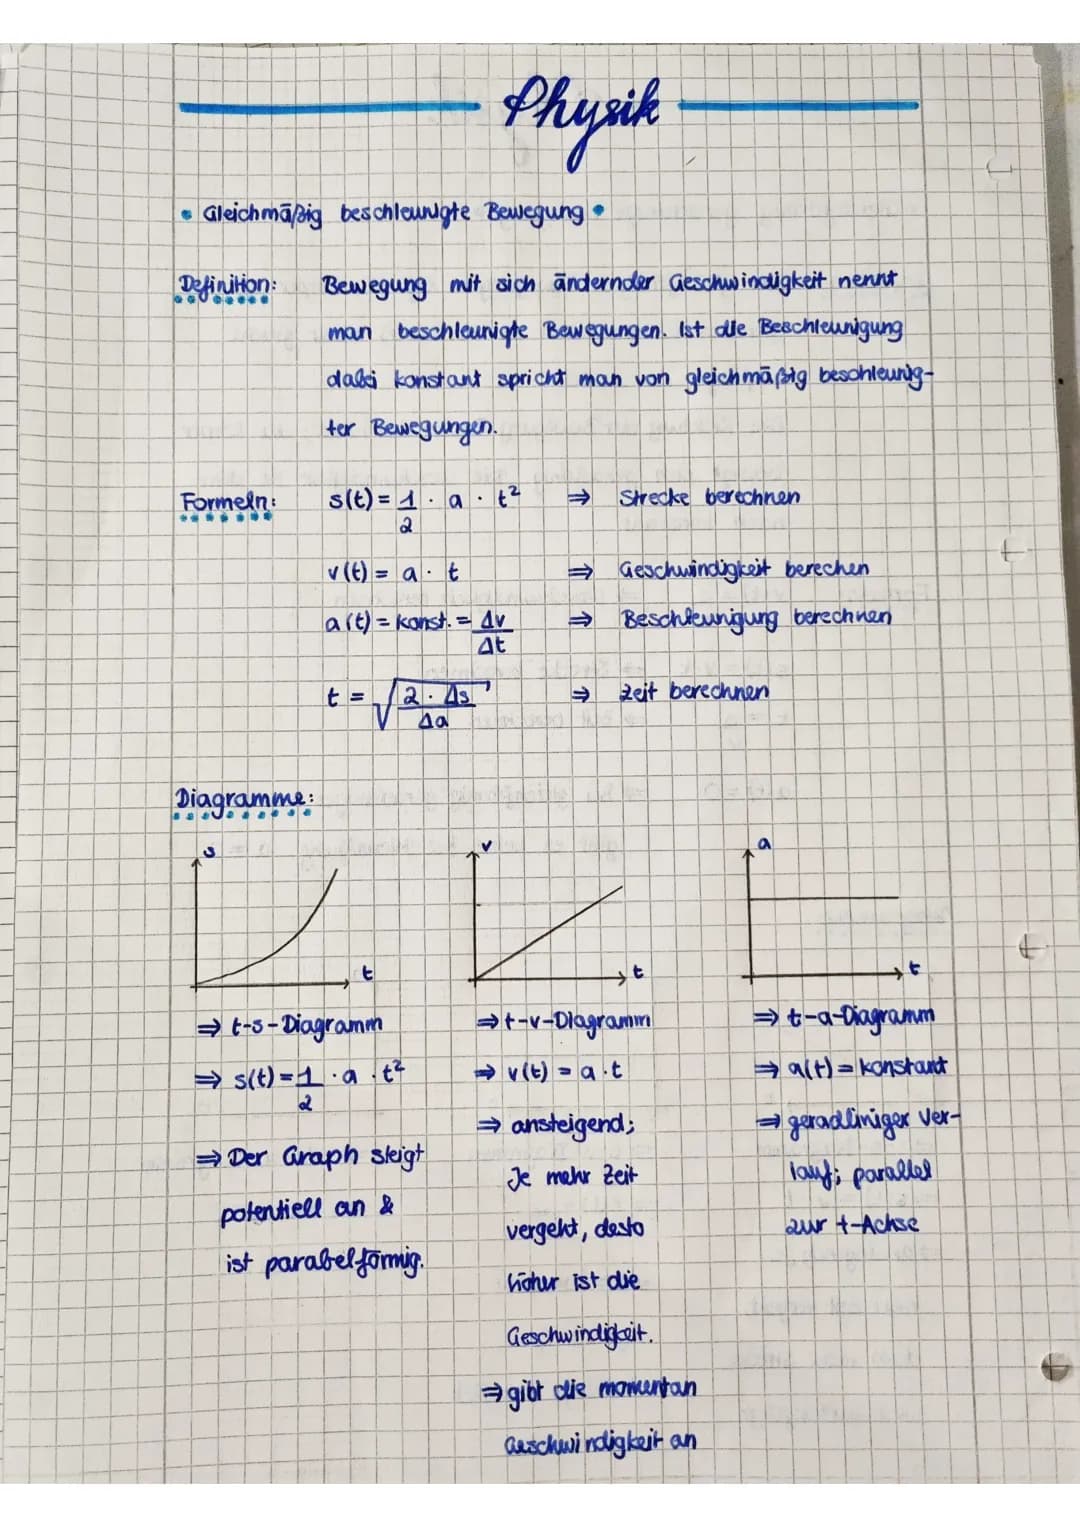 Physik
• Gleichmäßig beschleunigte Bewegung •
Definition: Bewegung mit sich ändernder Geschwindigkeit nennt
man beschleunigte Bewegungen. Ist die Beschleunigung
dabei konstant spricht man von gleichmäßig beschleunig-
ter Bewegungen.
Formeln: s(t) = 1/2 · a · t² ⇒ Strecke berechnen
v(t) = a · t ⇒ Geschwindigkeit berechen
a(t) = konst. = Δv/Δt ⇒ Beschleunigung berechnen
t = √(2 · Δs/Δa) ⇒ Zeit berechnen
Diagramme:
s
t
⇒ t-s-Diagramm
⇒ s(t) = 1/2 · a · t²
⇒ Der Graph steigt
potentiell an &
ist parabelförmig.
v
t
⇒ t-v-Diagramm
⇒ v(t) = a · t
⇒ ansteigend;
Je mehr Zeit
vergeht, desto
höher ist die
Geschwindigkeit.
⇒ gibt die momentan
Geschwindigkeit an
a
t
⇒ t-a-Diagramm
⇒ a(t) = konstant
⇒ geradliniger Ver-
lauf; parallel
zur t-Achse